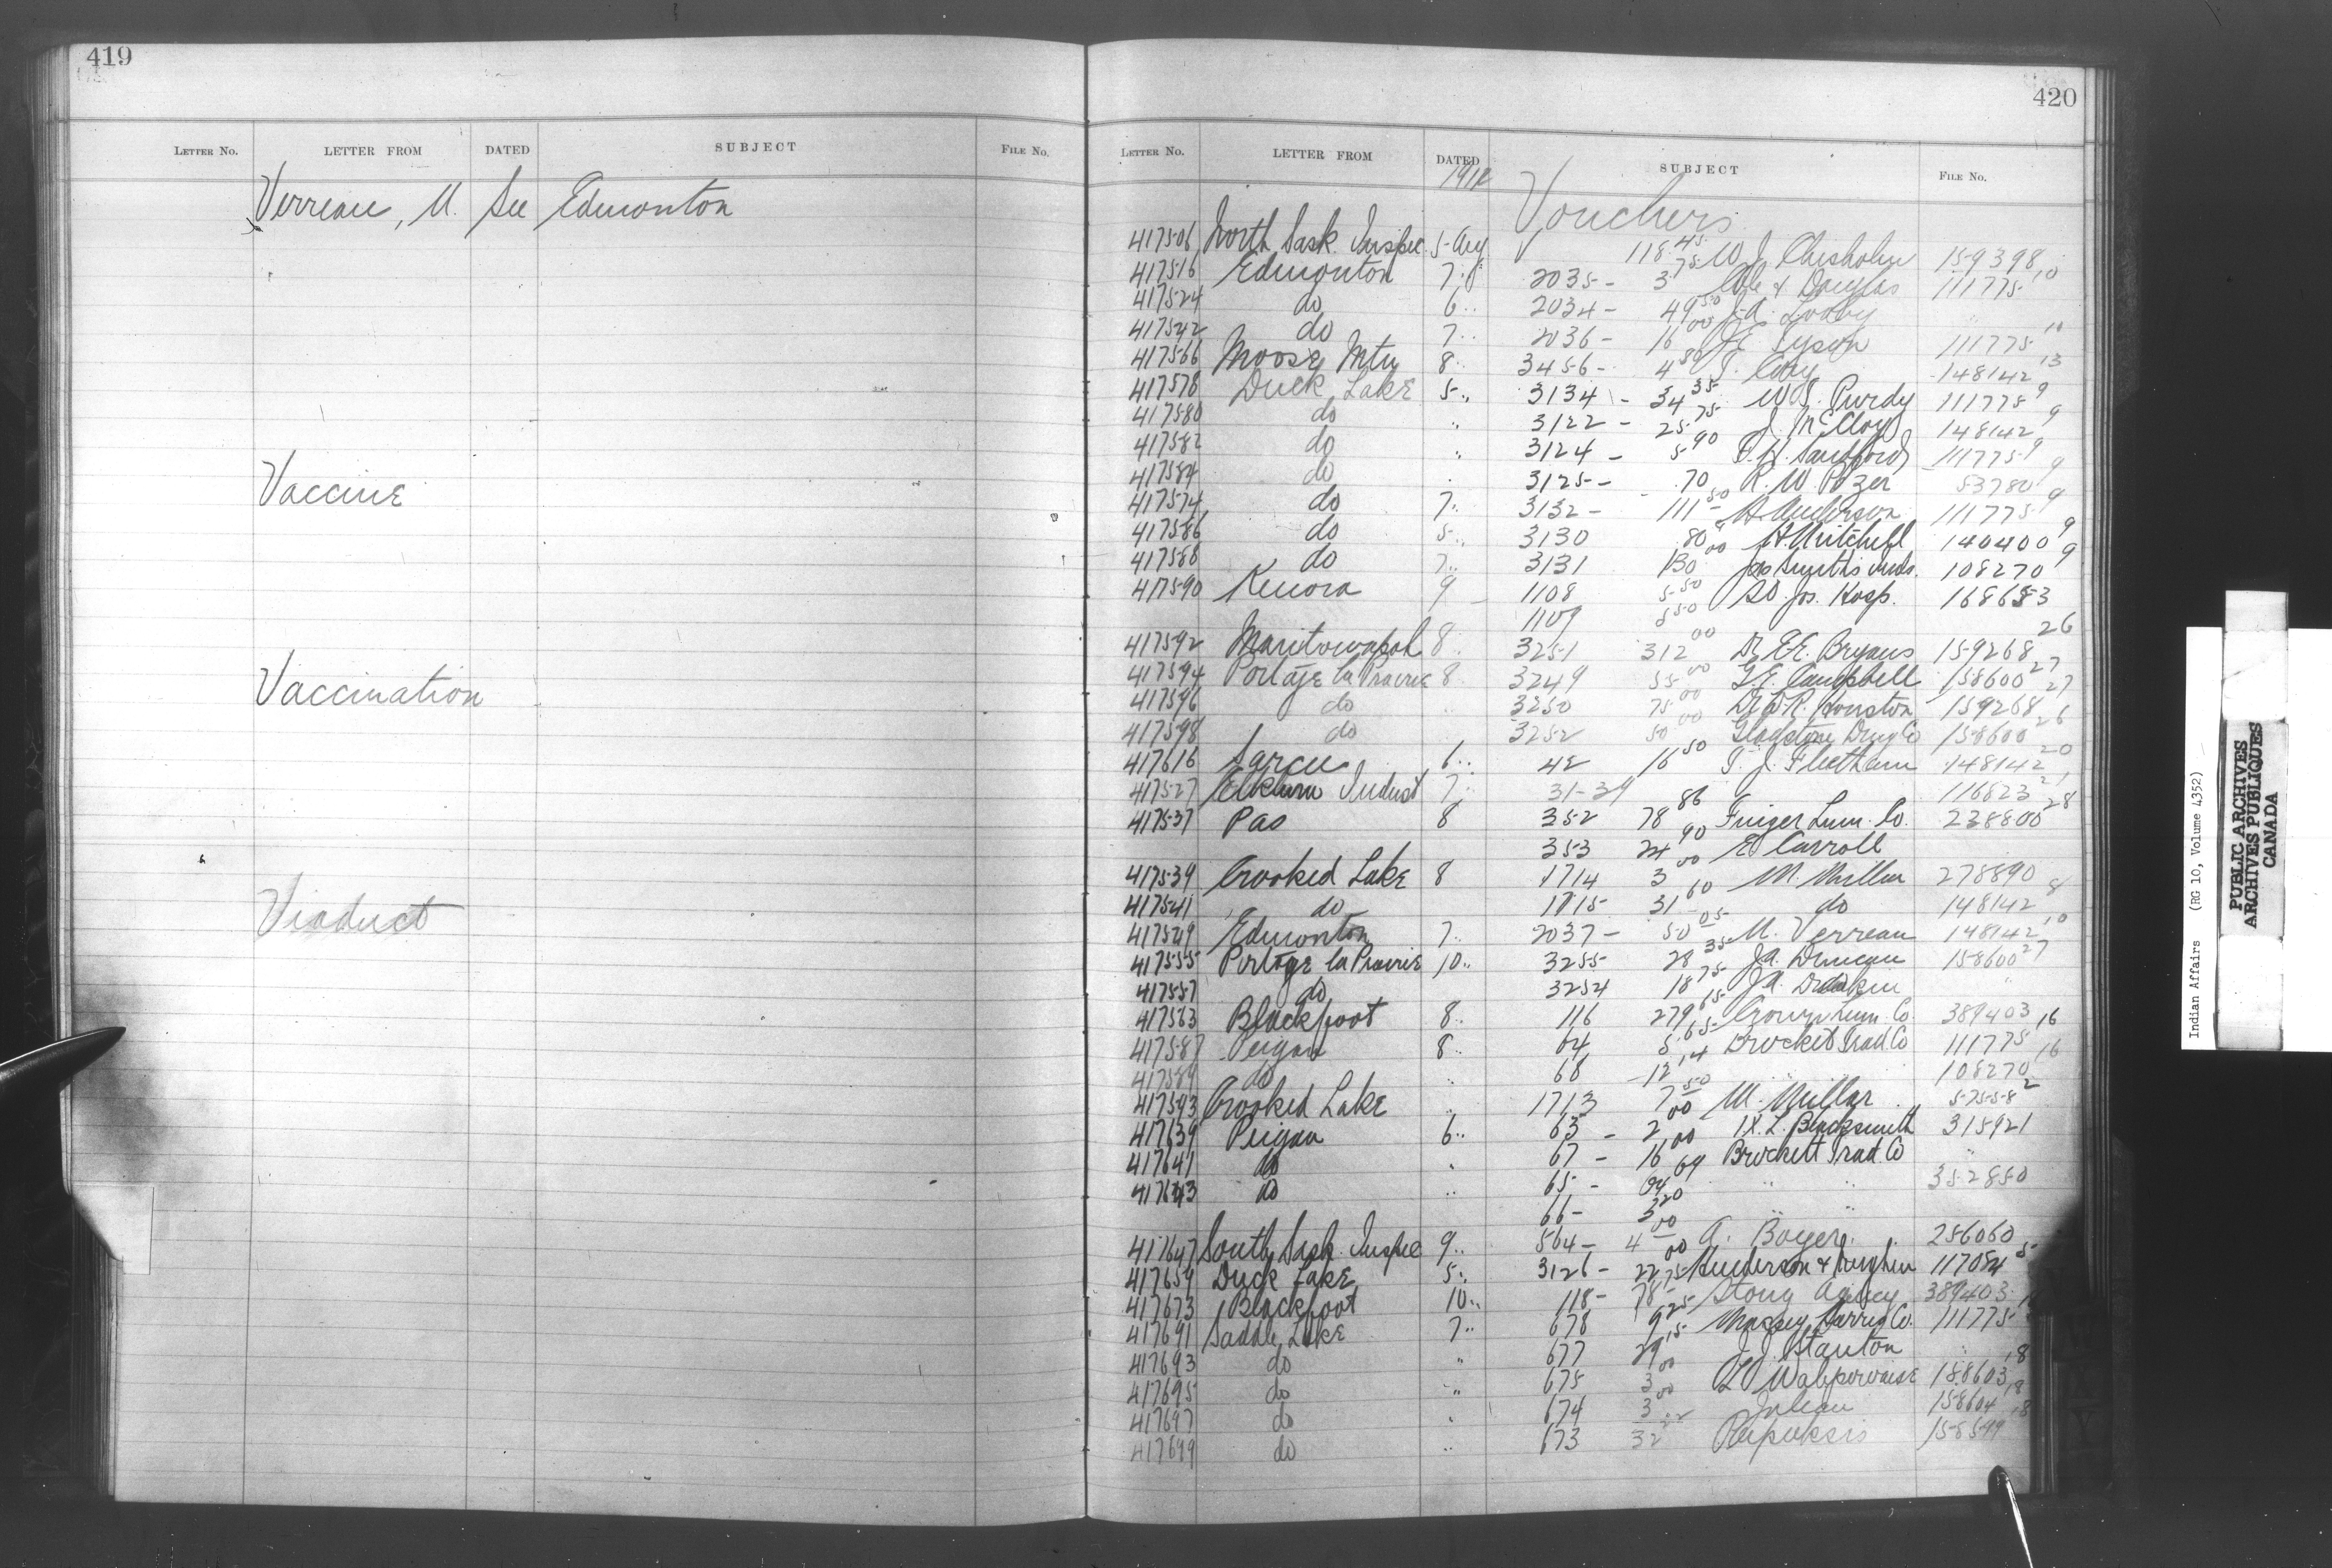 419
LETTER No. LETTER FROM DATED SUBJECT FILE No.
Verreau, M. See Edmonton
Vaccine
Vaccination
Viaduct
420
LETTER No. LETTER FROM DATED SUBJECT FILE No.
1912
Vouchers
417506 North Sask. Inspec. 5 118.45 W. J. Chisholm 159398
417516 Edmonton 7 2035 - 3.75 & Douglas 111775 10
417524 do 6 .. 2034 - 49.50 J.A. "
417542 do 7 .. 2036 - 16.00 J.E. Tyson 111775 10
417566 Moose Mtn 8 .. 3456 - 4.80 T. Cory 148142 13
417578 Duck Lake 5 .. 3134 - 34.35 W.S. Purdy 111775 9
417580 do .. 3122 - 25.75 J. McCloy 148142 9
417582 do .. 3124 - 5.90 T.H. Sandford 111775 9
417584 do . 3125 - .70 R. W. Pozer 53780 9
417574 do 7 .. 3132 - 111.50 A. Anderson 111775 9
417586 do 5 .. 3130 .80 A Mitchell 140400 9
417588 do 7 .. 3131 130.00 Jas Smith's Inds. 108270 9
417590 Kenora 9 1108 5.50 St. Jos. Hosp. 168653
1109 5.50
417592 Manitowapah 8 .. 3251 312.00 Dr. E.E. Bryans 159268 26
417594 Portage la Prairie 8 3249 55.00 G.E. Campbell 158600 27
417596 do .. 3250 75.00 Dr. W.R. Houston 159268 27
417598 do .. 3252 50.00 Gladstone Drug Co 158600 26
417616 Sarcee 6 .. 42 16.50 T. J. Fleetham 148142 20
417527 Elkhorn Indust 7 .. 31-39 116823 21
417537 Pas 8 352 78.86 Finger Lum. Co. 228800 28
353 24.90 E Carroll
417539 Crooked Lake 8 1714 3.00 M. Millar 278890
417541 do 1715 31.60 do 148142 8
417549 Edmonton 7 .. 2037 - 50.05 M. Verreau 148142 10
417555 Portage la Prairie 10 .. 3255 28.35 J.A. Duncan 158600 27
417557 do 3254 18.75 J.A. "
417563 Blackfoot 8 .. 116 279.65 Crown Lum. Co. 389403
417587 Peigan 8 .. 64 5.65 Brockett Trad. Co 111775 16
417589 do .. 68 12.14 " " 108270 16
417593 Crooked Lake .. 1713 7.50 M. Millar 57558 2
417639 Peigan 6 .. 63 - 2.00 I.X.L. Blacksmith 315921
417641 do . 67 - 16.00 Brockett Trad. Co "
417643 do .. 65 - 64.69 " " 352850
66 - 3.20 " "
417647 South Sask. Inspec 9 .. 564 - 4.00 A. Boyer 256060
417659 Duck Lake 5 .. 3126 - 22.00 Henderson & 117054 5
417673 Blackfoot 10 .. 118 - 78.75 Stony Agency 389403
417691 Saddle Lake 7 .. 678 9.25 Massey Harris Co. 111775
417693 do " 677 29.15 J. J. Stanton " 18
417695 do .. 675 3.00 158603 18
417697 do . 674 3.00 158604 18
417699 do .. 673 32.22 Papuksis 158599
Indian Affairs (RG 10, Volume 4352)
PUBLIC ARCHIVES
ARCHIVES PUBLIQUES
CANADA